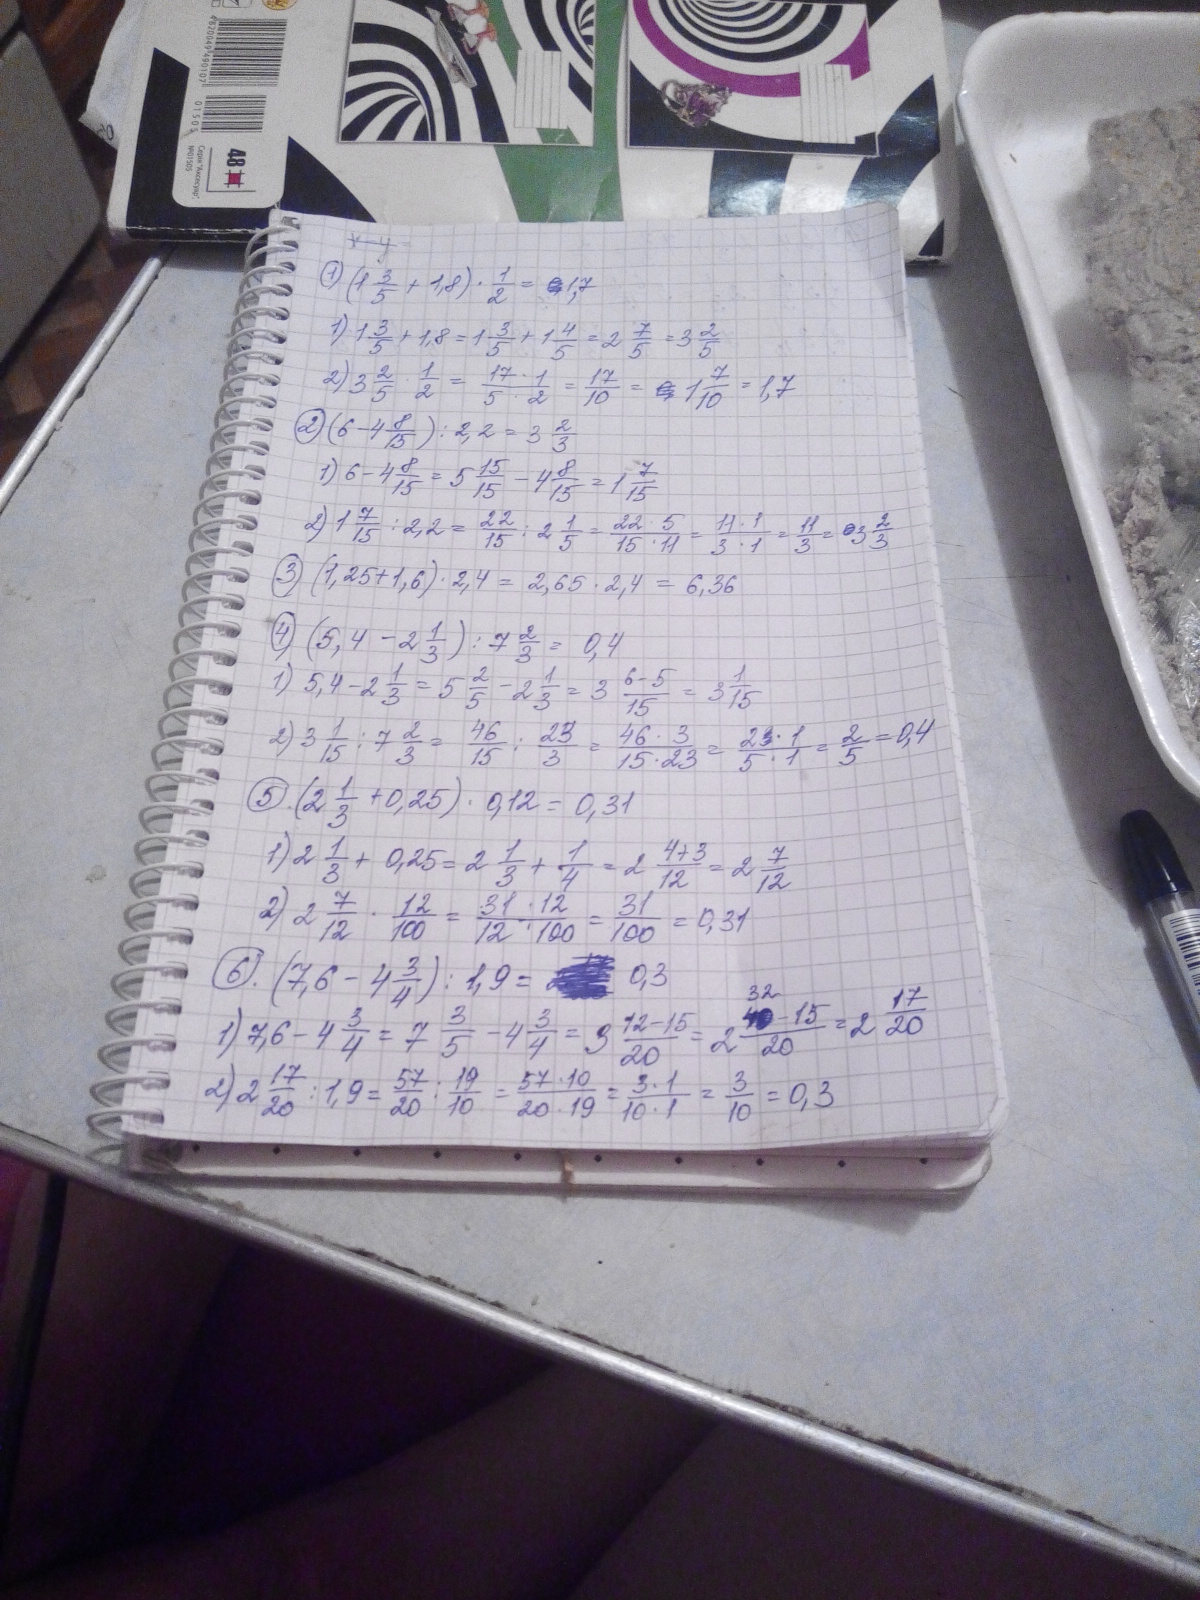 4620049490107
01505
48
Серия "Аксессуар"
№01505
x-y
1) (1 3/5 + 1,8) · 1/2 = 1,7
1) 1 3/5 + 1,8 = 1 3/5 + 1 4/5 = 2 7/5 = 3 2/5
2) 3 2/5 · 1/2 = 17·1/5·2 = 17/10 = 1 7/10 = 1,7
2) (6 - 4 8/15) : 2,2 = 3 2/3
1) 6 - 4 8/15 = 5 15/15 - 4 8/15 = 1 7/15
2) 1 7/15 : 2,2 = 22/15 : 2 1/5 = 22·5/15·11 = 11·1/3·1 = 11/3 = 3 2/3
3) (1,25+1,6) · 2,4 = 2,65 · 2,4 = 6,36
4) (5,4 - 2 1/3) : 7 2/3 = 0,4
1) 5,4 - 2 1/3 = 5 2/5 - 2 1/3 = 3 6-5/15 = 3 1/15
2) 3 1/15 : 7 2/3 = 46/15 : 23/3 = 46·3/15·23 = 23·1/5·1 = 2/5 = 0,4
5. (2 1/3 + 0,25) · 0,12 = 0,31
1) 2 1/3 + 0,25 = 2 1/3 + 1/4 = 2 4+3/12 = 2 7/12
2) 2 7/12 · 12/100 = 31·12/12·100 = 31/100 = 0,31
6. (7,6 - 4 3/4) : 1,9 = 0,3
1) 7,6 - 4 3/4 = 7 3/5 - 4 3/4 = 3 12-15/20 = 2 32-15/20 = 2 17/20
2) 2 17/20 : 1,9 = 57/20 : 19/10 = 57·10/20·19 = 3·1/10·1 = 3/10 = 0,3